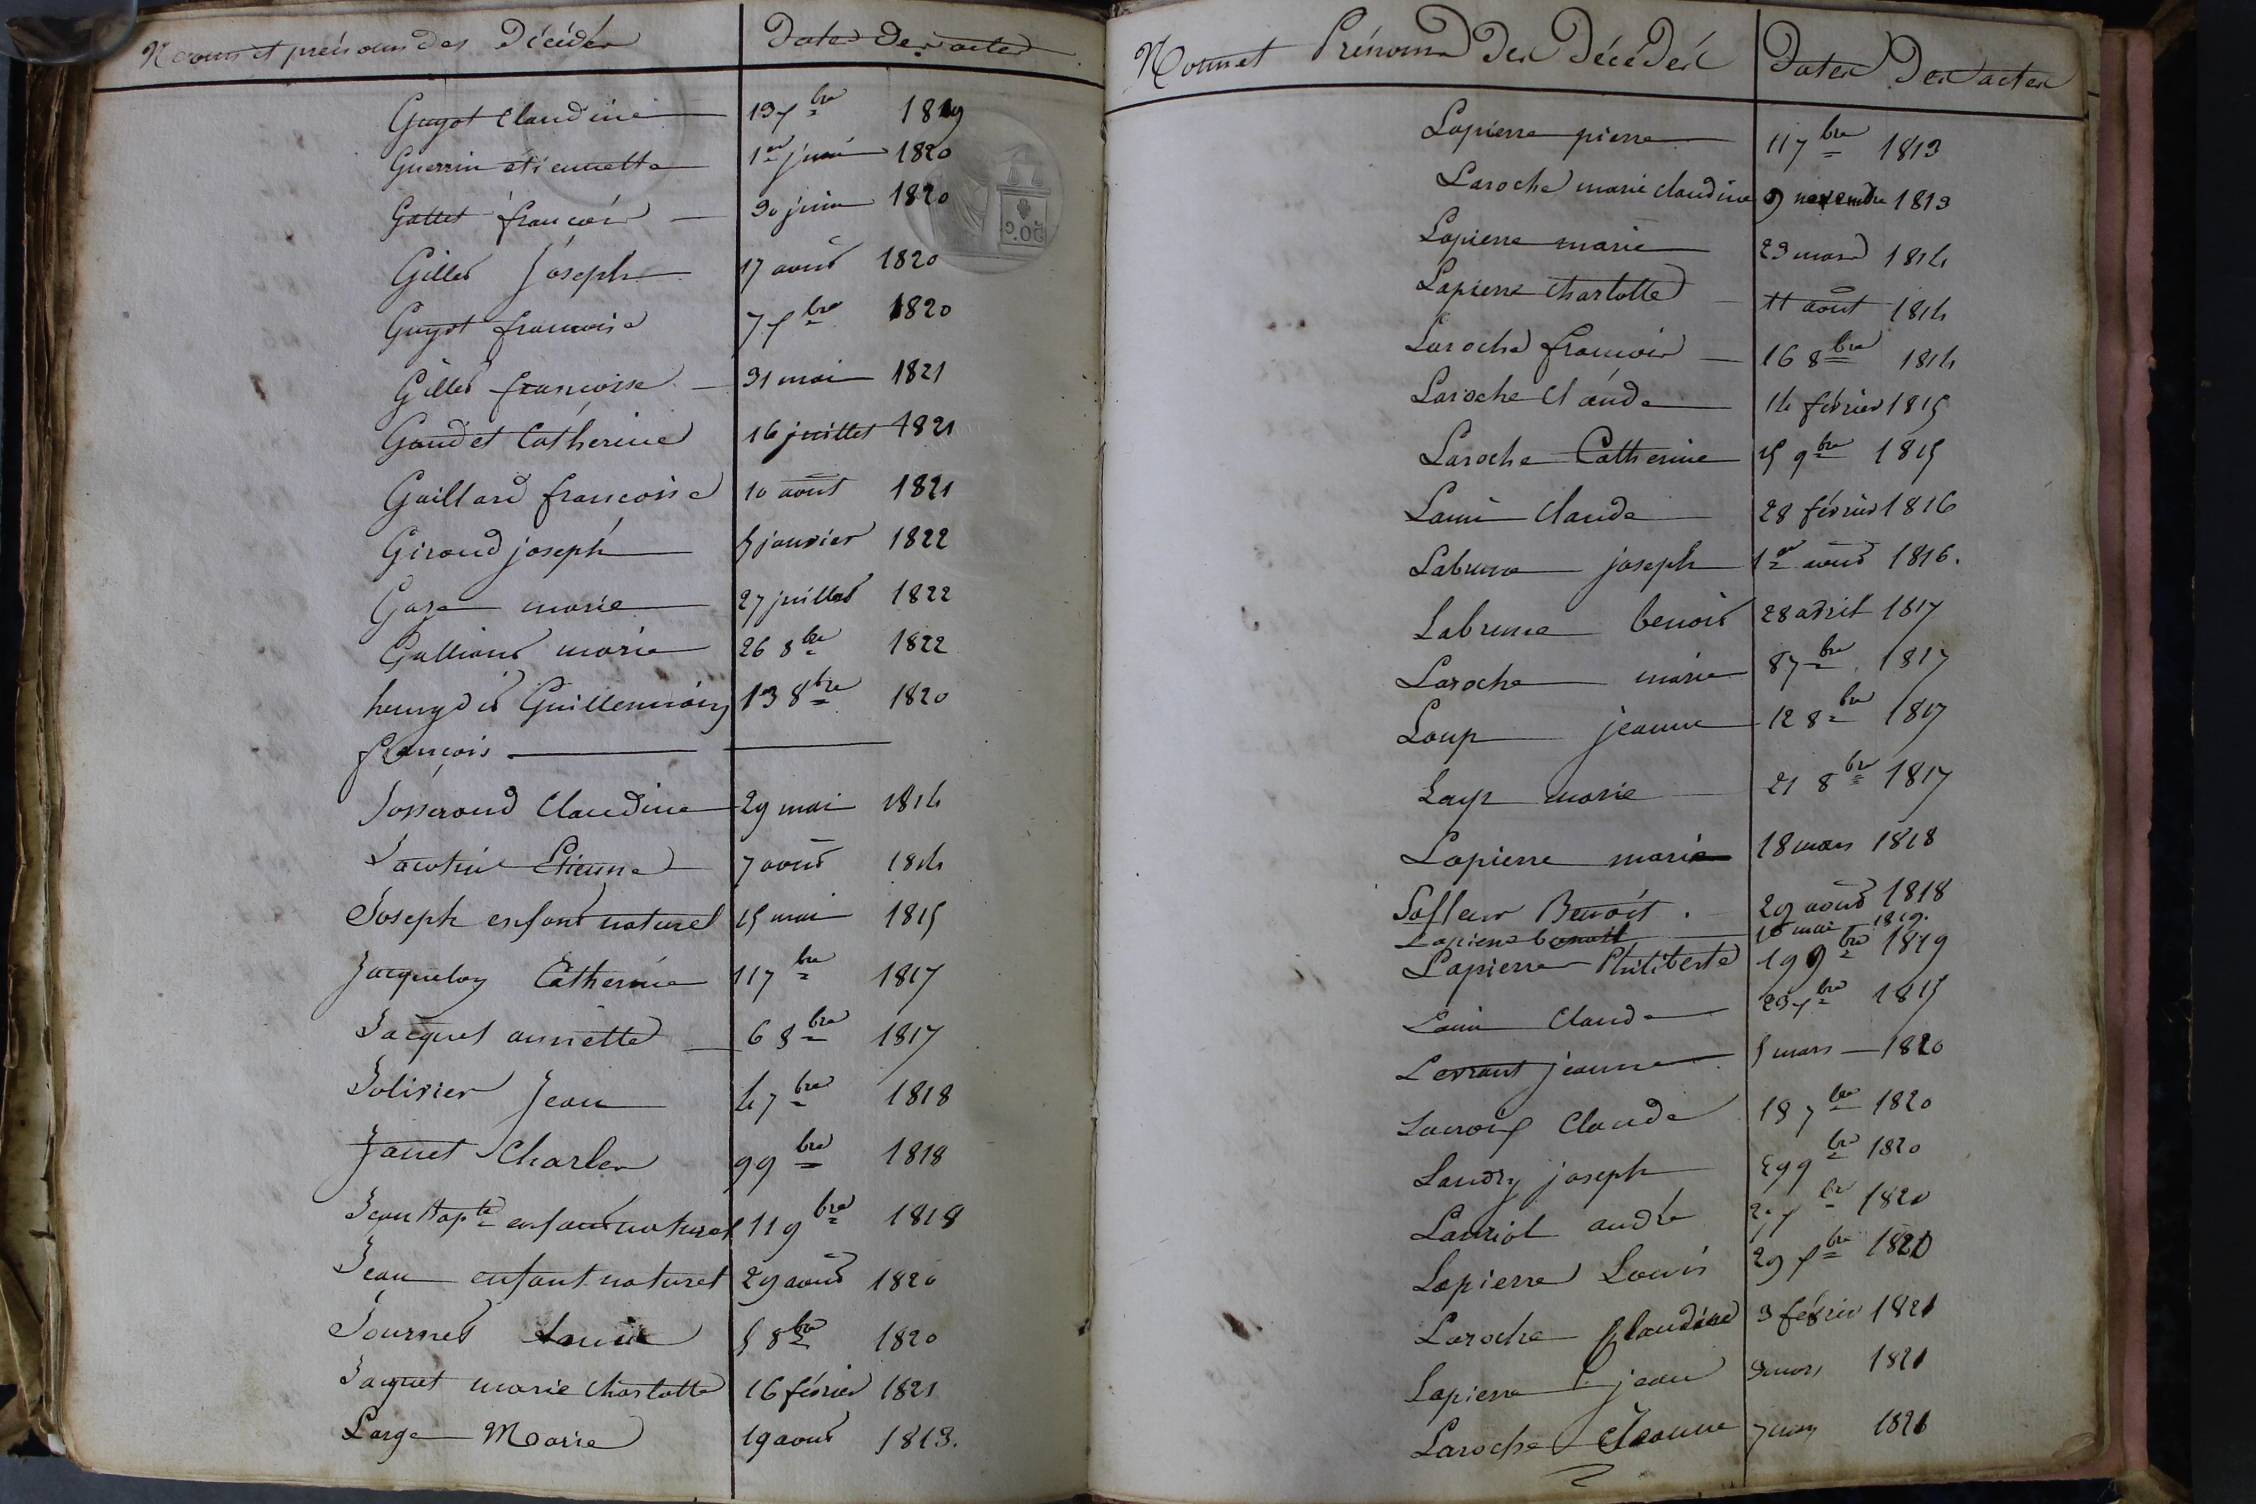 Noms et prénoms des Décédés Dates des actes
Guyot Claudine 13 7bre 1819
Guerrin étiennette 1er juin 1820
Gallet françois 30 juin 1820
Gillet Joseph 17 aout 1820
Guyot francoise 7 7bre 1820
Gillet francoise 31 mai 1821
Gaudet Catherine 16 juillet 1821
Gaillard francoise 10 août 1821
Giroud joseph 5 janvier 1822
marie 27 juillet 1822
marie 26 8bre 1822
dit 13 8bre 1820
françois
Josserand Claudine 29 mai 1814
Etienne 7 aout 1814
Joseph enfant naturel 15 mai 1815
Catherine 11 7bre 1817
Jacquet annette 6 8bre 1817
Jolivier Jean 4 7bre 1818
Janet Charles 9 9bre 1818
Jean Bapte enfant naturel 11 9bre 1818
Jean enfant naturel 29 aout 1820
Journet 5 8bre 1820
Jacquet marie Charlotte 16 février 1821
Large Marie 19 aout 1813.
Nom et Prénoms Des Décédés Dates Des actes
Lapierre pierre 11 7bre 1813
Laroche marie claudine 9 novembre 1813
Lapierre marie 23 mars 1814
Lapierre Charlotte 11 août 1814
Laroche françois 16 8bre 1814
Laroche Claude 14 février 1815
Laroche Catherine 15 9bre 1815
Lami Claude 28 février 1816
Labrune joseph 1er aout 1816.
Labrune benoit 28 avril 1817
Laroche marie 8 7bre 1817
Loup jeanne 12 8bre 1817
Loup marie 21 8bre 1817
Lapierre marie 18 mars 1818
Lafleur Benoit. 29 aout 1818
Lapierre benoit mai 1819.
Lapierre Philiberte 19 9bre 1819
Lami Claude 23 7bre 1815
Levrant jeanne 5 mars 1820
Claude 18 7bre 1820
Landry joseph 9bre 1820
Lauriot andré 1820
Lapierre Louis 29 7bre 1820
Laroche Claudine 3 février 1821
Lapierre jean mars 1821
Laroche Jeanne 7 mars 1821